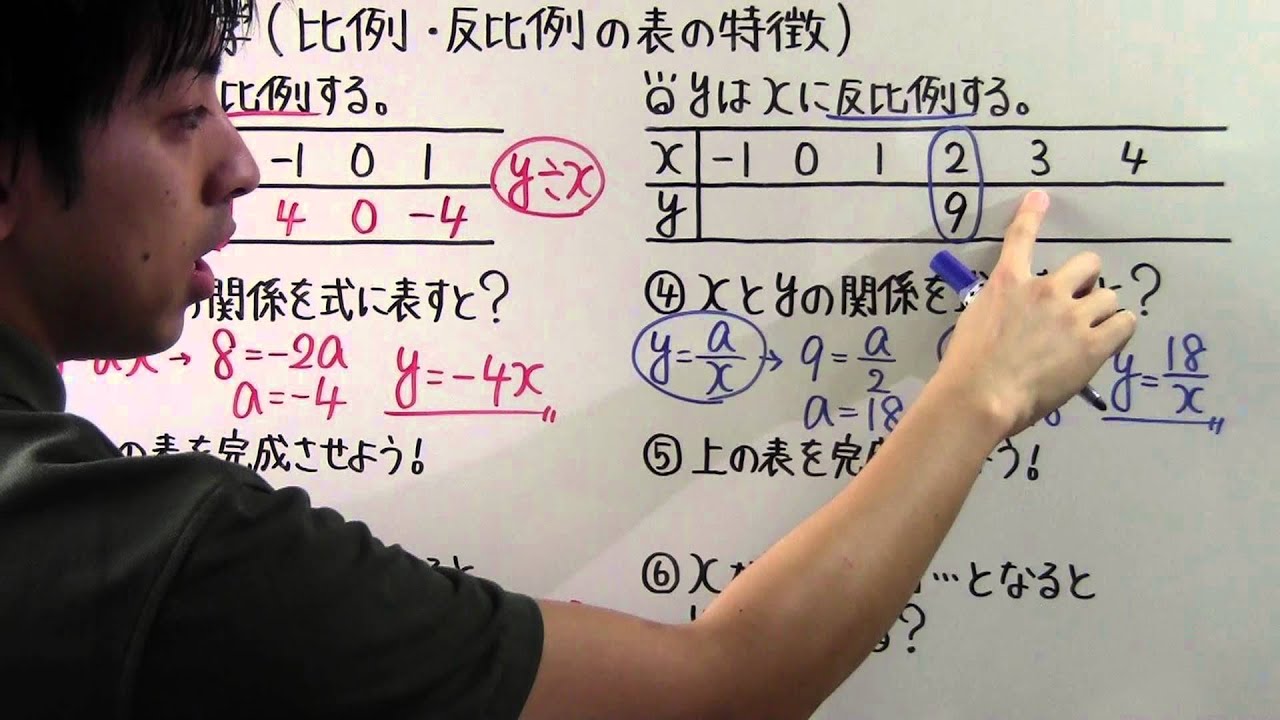 （比例・反比例の表の特徴）
比例する。
-1 0 1
4 0 -4
y÷x
関係を式に表すと？
ax → 8=-2a
a=-4
y=-4x
の表を完成させよう！
ると
yはxに反比例する。
x -1 0 1 2 3 4
y 9
④xとyの関係を と？
y=a/x → 9=a/2
a=18
y=18/x
⑤上の表を完 う！
⑥x …となると
？